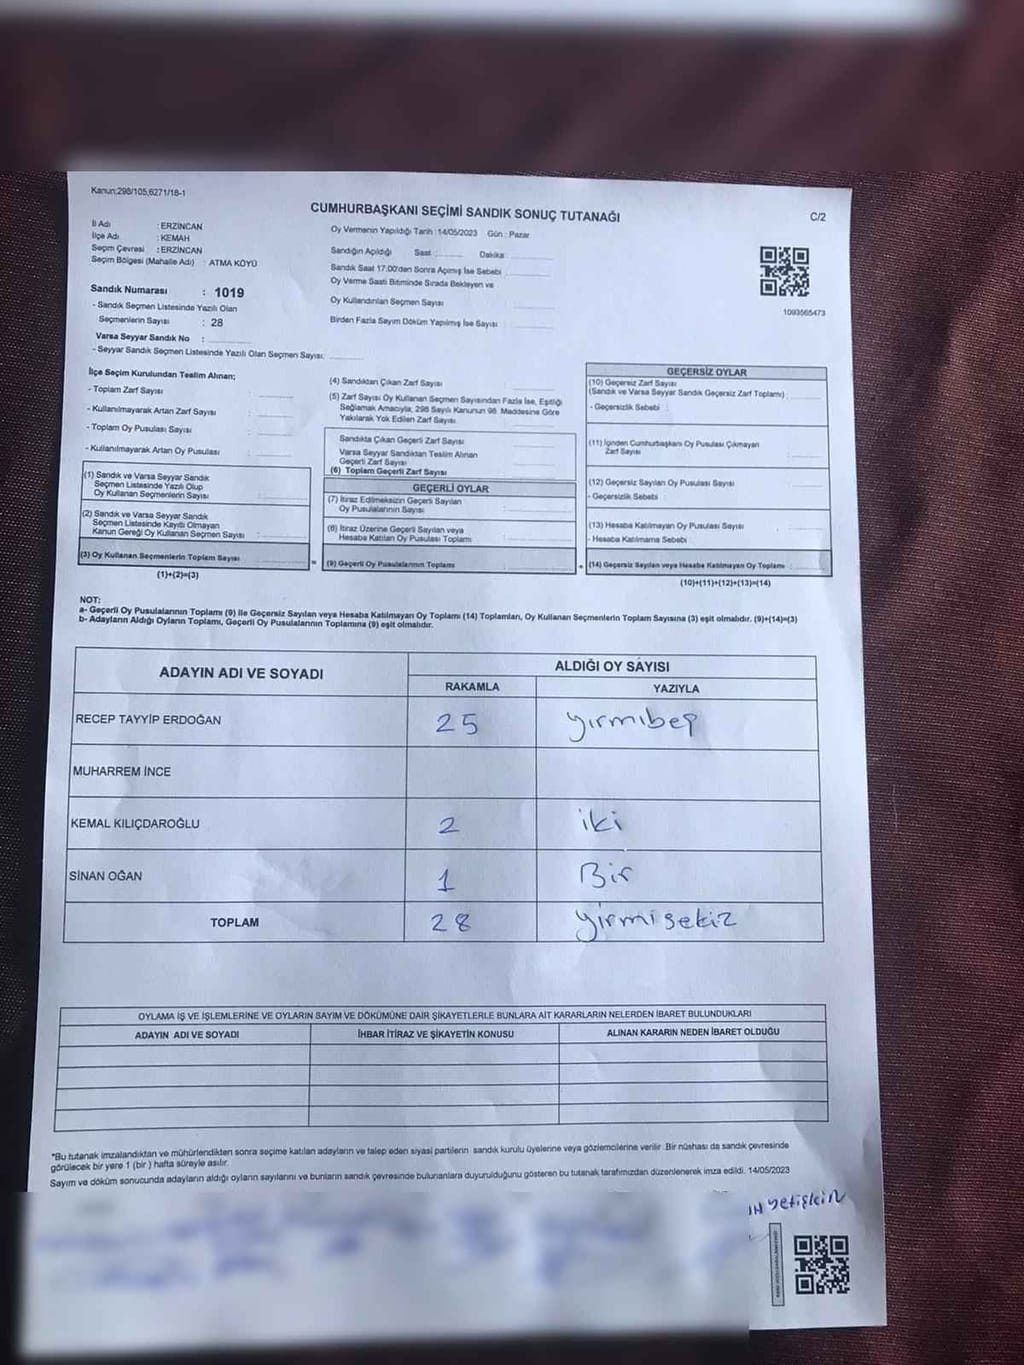 Kanun;298/105,6271/18-1
CUMHURBAŞKANI SEÇİMİ SANDIK SONUÇ TUTANAĞI
C/2
İl Adı : ERZİNCAN
İlçe Adı : KEMAH
Seçim Çevresi : ERZİNCAN
Seçim Bölgesi (Mahalle Adı) : ATMA KÖYÜ
Sandık Numarası : 1019
- Sandık Seçmen Listesinde Yazılı Olan
Seçmenlerin Sayısı : 28
Varsa Seyyar Sandık No :
- Seyyar Sandık Seçmen Listesinde Yazılı Olan Seçmen Sayısı;
Oy Vermenin Yapıldığı Tarih : 14/05/2023 Gün : Pazar
Sandığın Açıldığı Saat Dakika
Sandık Saat 17.00'den Sonra Açımış İse Sebebi
Oy Verme Saati Bitiminde Sırada Bekleyen ve
Oy Kullandırılan Seçmen Sayısı
Birden Fazla Sayım Döküm Yapılmış İse Sayısı
1093565473
İlçe Seçim Kurulundan Teslim Alınan;
- Toplam Zarf Sayısı
- Kullanılmayarak Artan Zarf Sayısı
- Toplam Oy Pusulası Sayısı
- Kullanılmayarak Artan Oy Pusulası
(1) Sandık ve Varsa Seyyar Sandık
Seçmen Listesinde Yazılı Olup
Oy Kullanan Seçmenlerin Sayısı
(2) Sandık ve Varsa Seyyar Sandık
Seçmen Listesinde Kayıtlı Olmayan
Kanun Gereği Oy Kullanan Seçmen Sayısı
(3) Oy Kullanan Seçmenlerin Toplam Sayısı
(1)+(2)=(3)
(4) Sandıktan Çıkan Zarf Sayısı
(5) Zarf Sayısı Oy Kullanan Seçmen Sayısından Fazla İse, Eşitliği
Sağlamak Amacıyla, 298 Sayılı Kanunun 98. Maddesine Göre
Yakılarak Yok Edilen Zarf Sayısı
Sandıkta Çıkan Geçerli Zarf Sayısı
Varsa Seyyar Sandıktan Teslim Alınan
Geçerli Zarf Sayısı
(6) Toplam Geçerli Zarf Sayısı
GEÇERLİ OYLAR
(7) İtiraz Edilmeksizin Geçerli Sayılan
Oy Pusulalarının Sayısı
(8) İtiraz Üzerine Geçerli Sayılan veya
Hesaba Katılan Oy Pusulası Toplamı
= (9) Geçerli Oy Pusulalarının Toplamı
GEÇERSİZ OYLAR
(10) Geçersiz Zarf Sayısı
(Sandık ve Varsa Seyyar Sandık Geçersiz Zarf Toplamı)
- Geçersizlik Sebebi :
(11) İçinden Cumhurbaşkanı Oy Pusulası Çıkmayan
Zarf Sayısı
(12) Geçersiz Sayılan Oy Pusulası Sayısı
- Geçersizlik Sebebi
(13) Hesaba Katılmayan Oy Pusulası Sayısı
- Hesaba Katılmama Sebebi
+ (14) Geçersiz Sayılan veya Hesaba Katılmayan Oy Toplamı
(10)+(11)+(12)+(13)=(14)
NOT:
a- Geçerli Oy Pusulalarının Toplamı (9) ile Geçersiz Sayılan veya Hesaba Katılmayan Oy Toplamı (14) Toplamları, Oy Kullanan Seçmenlerin Toplam Sayısına (3) eşit olmalıdır. (9)+(14)=(3)
b- Adayların Aldığı Oyların Toplamı, Geçerli Oy Pusulalarının Toplamına (9) eşit olmalıdır.
ADAYIN ADI VE SOYADI
ALDIĞI OY SAYISI
RAKAMLA YAZIYLA
RECEP TAYYİP ERDOĞAN 25 yırmıbeş
MUHARREM İNCE
KEMAL KILIÇDAROĞLU 2 iki
SİNAN OĞAN 1 Bir
TOPLAM 28 yirmisekiz
OYLAMA İŞ VE İŞLEMLERİNE VE OYLARIN SAYIM VE DÖKÜMÜNE DAİR ŞİKAYETLERLE BUNLARA AİT KARARLARIN NELERDEN İBARET BULUNDUKLARI
ADAYIN ADI VE SOYADI İHBAR İTİRAZ VE ŞİKAYETİN KONUSU ALINAN KARARIN NEDEN İBARET OLDUĞU
*Bu tutanak imzalandıktan ve mühürlendikten sonra seçime katılan adayların ve talep eden siyasi partilerin sandık kurulu üyelerine veya gözlemcilerine verilir. Bir nüshası da sandık çevresinde
görülecek bir yere 1 (bir ) hafta süreyle asılır.
Sayım ve döküm sonucunda adayların aldığı oyların sayılarını ve bunların sandık çevresinde bulunanlara duyurulduğunu gösteren bu tutanak tarafımızdan düzenlenerek imza edildi. 14/05/2023
yetişkin